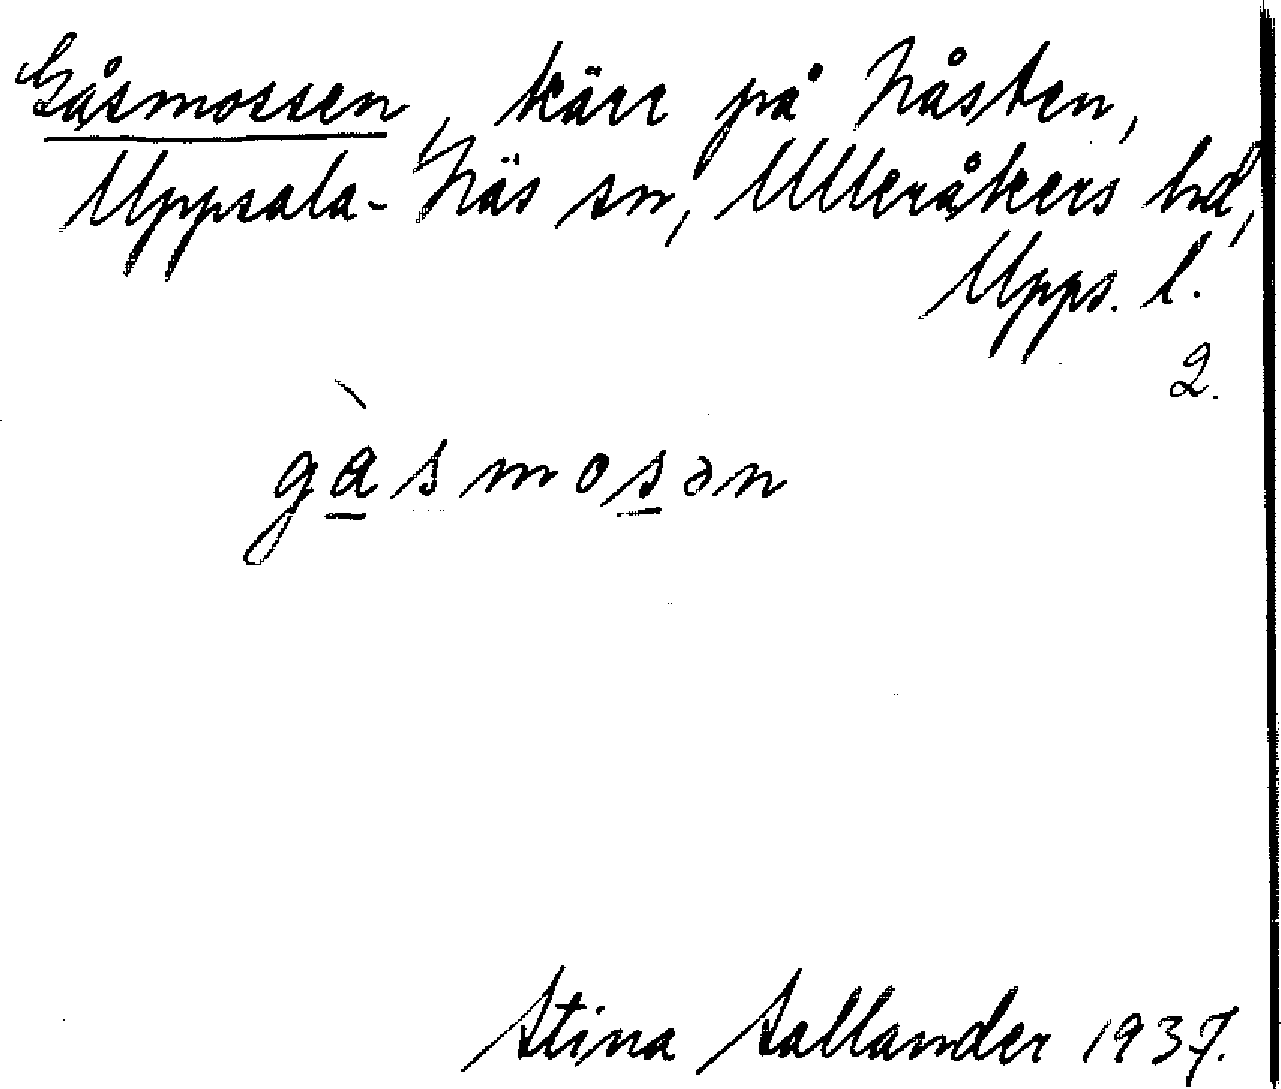 Gåsmossen, kärr på Nåsten,
Uppsala-Näs sn, Ulleråkers hd,
Upps. l.
2.
gà̱smos̱ən
Stina Sallander 1937.